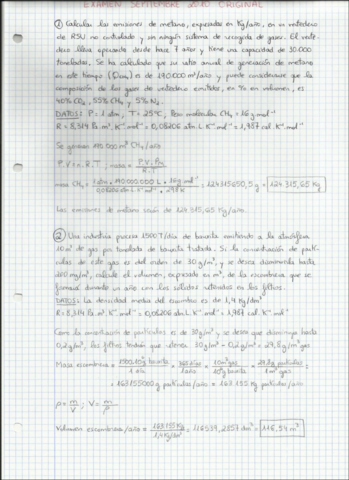 EXAMEN SEPTIEMBRE 2020 ORIGINAL
① Calcular las emisiones de metano, expresadas en Kg/año, en un vertedero
de RSU no controlado y sin ningún sistema de recogida de gases. El verte-
dero lleva operando desde hace 7 años y tiene una capacidad de 30.000
toneladas. Se ha calculado que su ratio anual de generación de metano
en este tiempo es de 190.000 m³/año y puede considerarse que la
composición de los gases de vertedero emitidos, en % en volumen, es
40% CO₂, 55% CH₄ y 5% N₂.
DATOS: P = 1 atm, T = 25°C, Peso molecular CH₄ = 16 g mol⁻¹
R = 8,314 Pa m³ K⁻¹ mol⁻¹ = 0,08206 atm L K⁻¹ mol⁻¹ = 1,987 cal K⁻¹ mol⁻¹
Se generan 190.000 m³ CH₄/año
P·V = n·R·T ; masa = P·V·Pm / R·T
masa CH₄ = 1 atm · 190.000.000 L · 16 g mol⁻¹ / 0,08206 atm L K⁻¹ mol⁻¹ · 298 K = 124315650,5 g = 124.315,65 Kg
Las emisiones de metano serán de 124.315,65 Kg/año.
② Una industria procesa 1500 T/día de bauxita emitiendo a la atmósfera
10 m³ de gas por tonelada de bauxita tratada. Si la concentración de partí-
culas de este gas es del orden de 30 g/m³, y se desea disminuirla hasta
200 mg/m³, calcule el volumen, expresado en m³, de la escombrera que se
formará durante un año con los sólidos retenidos en los filtros.
DATOS: La densidad media del escombro es de 1,4 Kg/dm³
R = 8,314 Pa m³ K⁻¹ mol⁻¹ = 0,08206 atm L K⁻¹ mol⁻¹ = 1,987 cal K⁻¹ mol⁻¹
Como la concentración de partículas es de 30 g/m³ y se desea que disminuya hasta
0,2 g/m³, los filtros tendrán que retener 30 g/m³ - 0,2 g/m³ = 29,8 g/m³ gas
Masa escombrera = 1500·10⁶ g bauxita / 1 día · 365 días / 1 año · 10 m³ gas / 10⁶ g bauxita · 29,8 g partículas / 1 m³ gas =
= 163155000 g partículas/año = 163.155 Kg partículas/año
ρ = m/V ; V = m/ρ
Volumen escombrera/año = 163.155 Kg / 1,4 Kg/dm³ = 116539,2857 dm³ = 116,54 m³